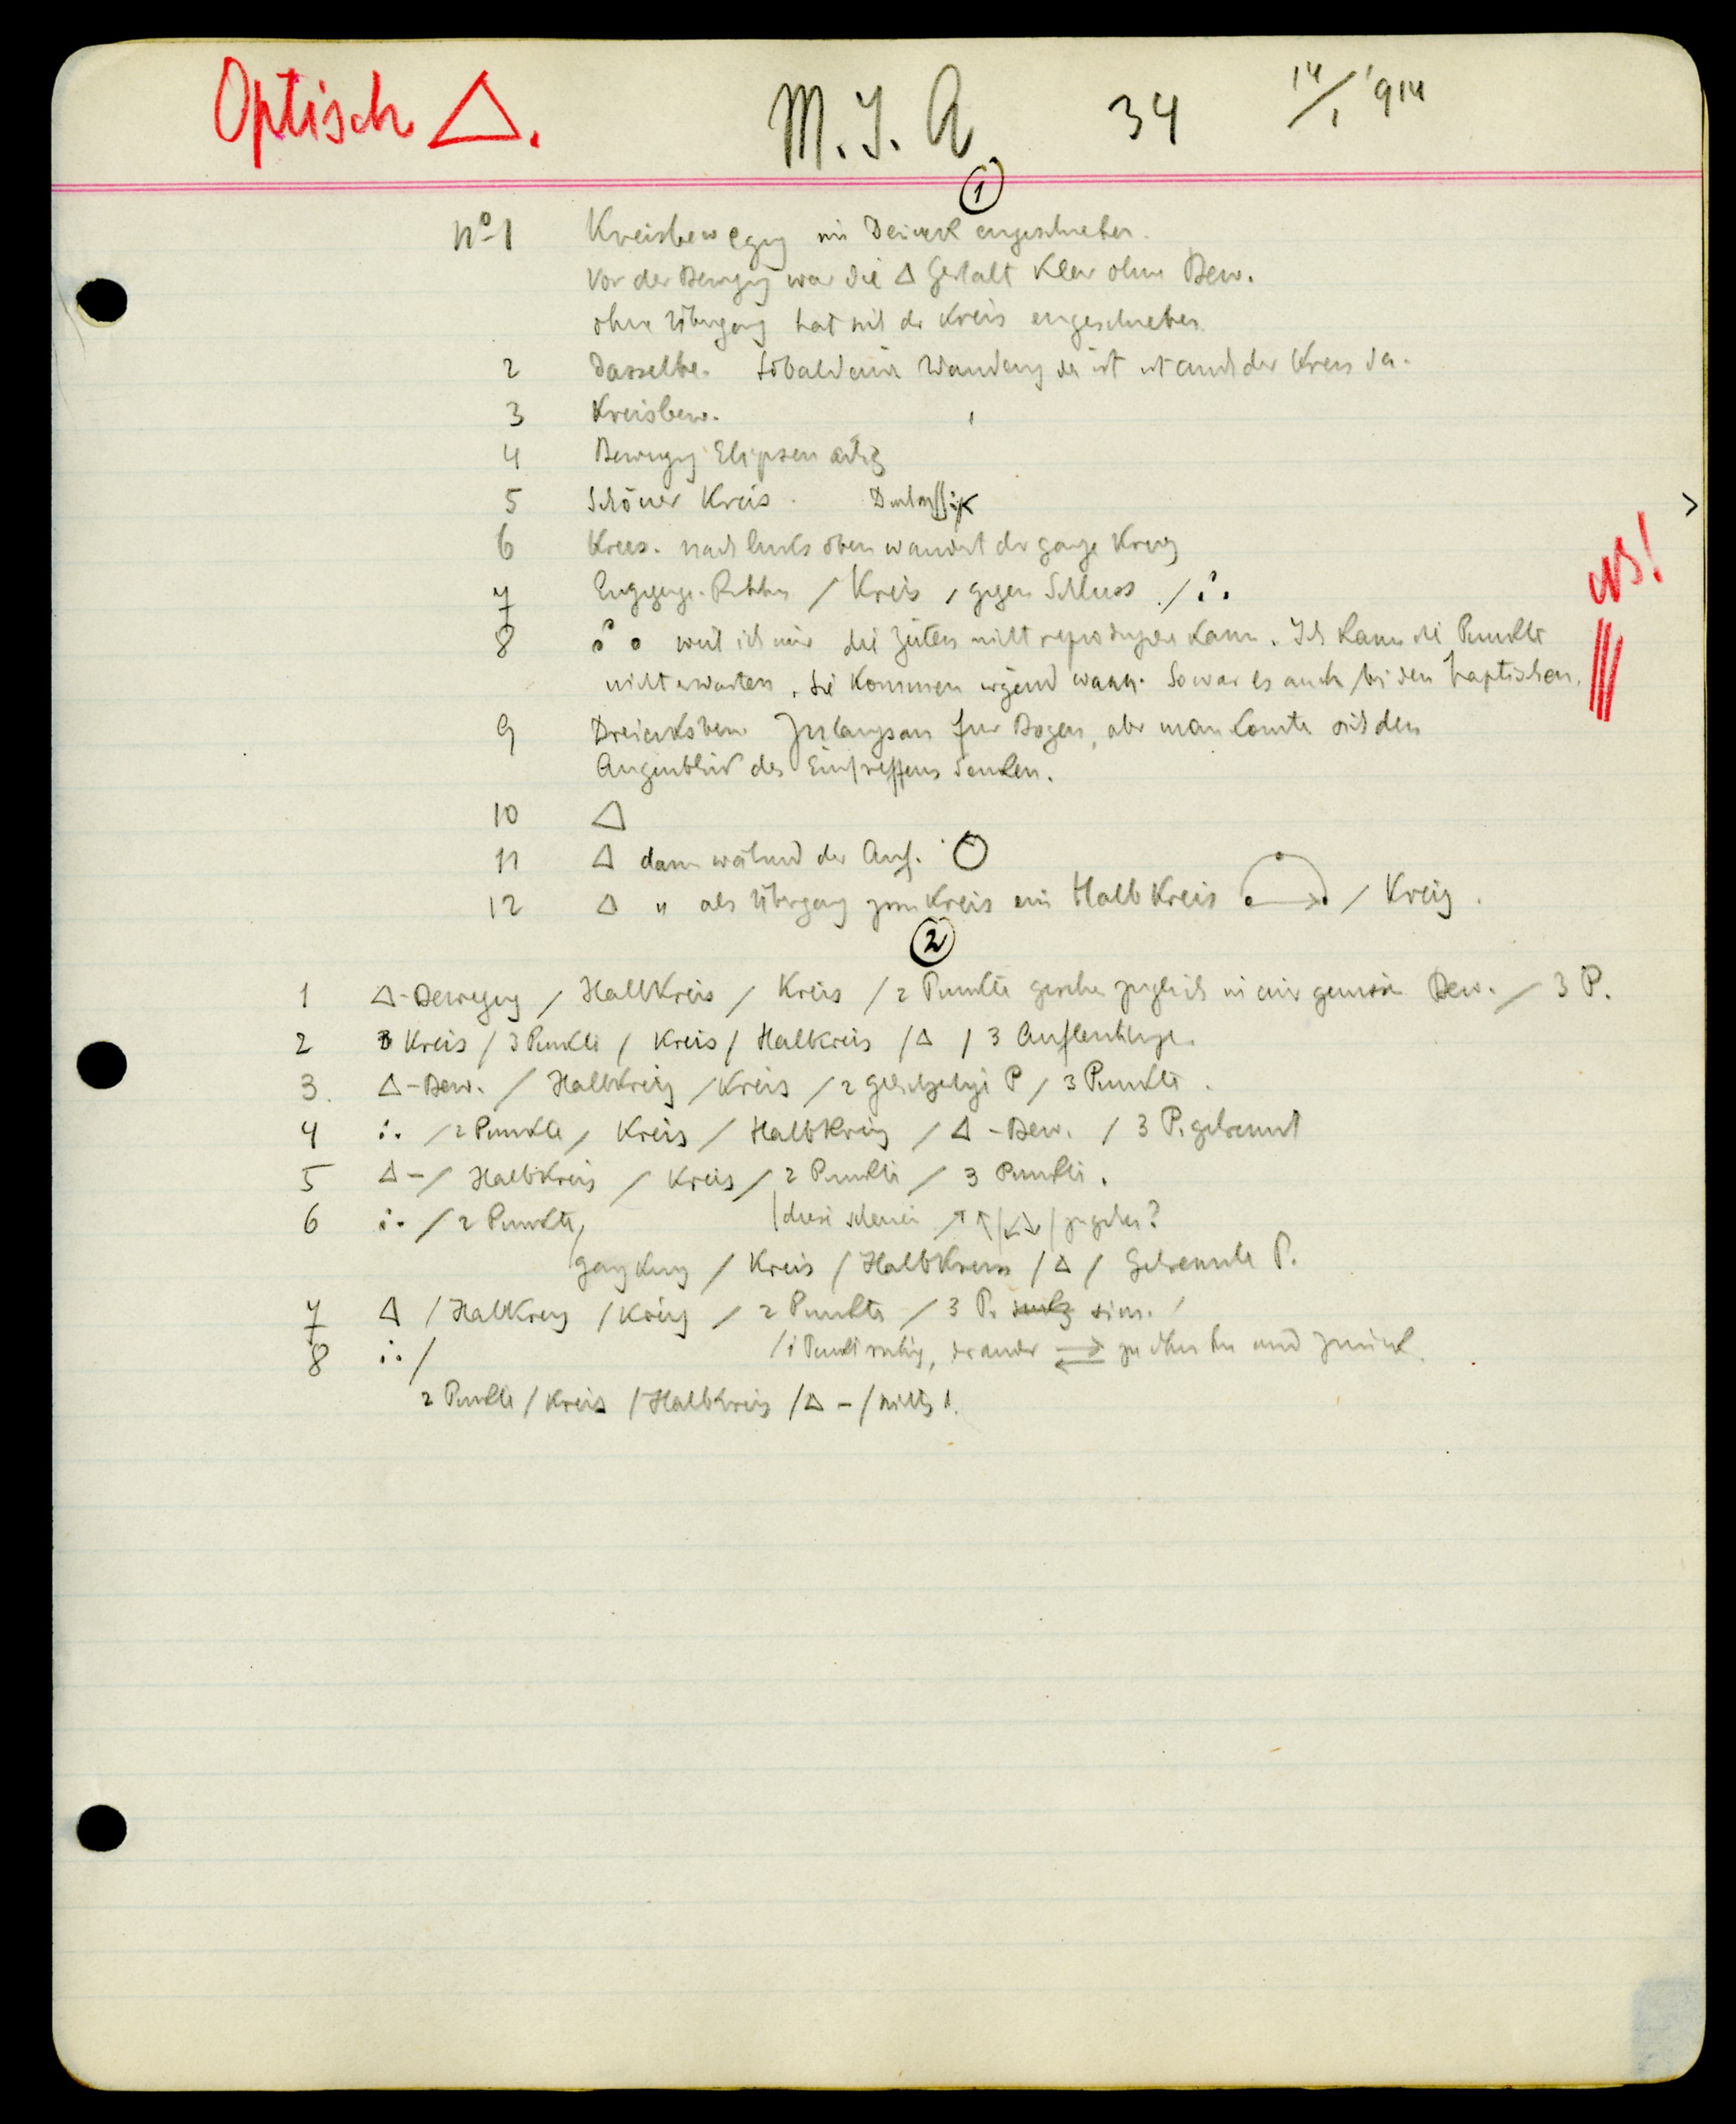 Optisch △. M. J. A. 34 14/1 '914
①
No 1 Kreisbewegung im Dreieck eingeschrieben.
Vor der Bewegung war die △ Gestalt klar ohne Bew.
ohne Übergang hat sich der Kreis eingeschrieben
2 Dasselbe. Sobald eine Wanderung da ist ist auch der Kreis da.
3 Kreisbew.
4 Bewegung Elipsen artig
5 Schöner Kreis.
6 Kreis. nach links oben wandert der ganze Kreis
7 / Kreis, gegen Schluss / ∴
8 ∴ weil ich mir die Zeiten nicht reproduzieren kann. Ich kann die Punkte
nicht erwarten, sie kommen irgend wann. So war es auch bei den haptischen.
9 Dreiecksbew. Zu langsam für Bogen, aber man konnte sich den
Augenblick des Eintreffens denken.
10 △
11 △ dann während der Auf. ○
12 △ " als Übergang zum Kreis ein Halbkreis / Kreis.
②
1 △-Bewegung / Halbkreis / Kreis / 2 Punkte zugleich in Bew. / 3 P.
2 Kreis / 3 Punkte / Kreis / Halbkreis / △ / 3
3. △-Bew. / Halbkreis / Kreis / 2 P / 3 Punkte.
4 ∴ / 2 Punkte / Kreis / Halbkreis / △ -Bew. / 3 P. getrennt
5 △ - / Halbkreis / Kreis / 2 Punkte / 3 Punkte.
6 ∴ / 2 Punkte, / diese ↗↑
/ Kreis / Halbkreis / △ / Getrennte P.
7 △ / Halbkreis / Kreis / 2 Punkte / 3 P. sim. /
8 ∴ / / 1 Punkt ruhig, der andere ⇄ zu ihm hin und zurück.
2 Punkte / Kreis / Halbkreis / △ - /